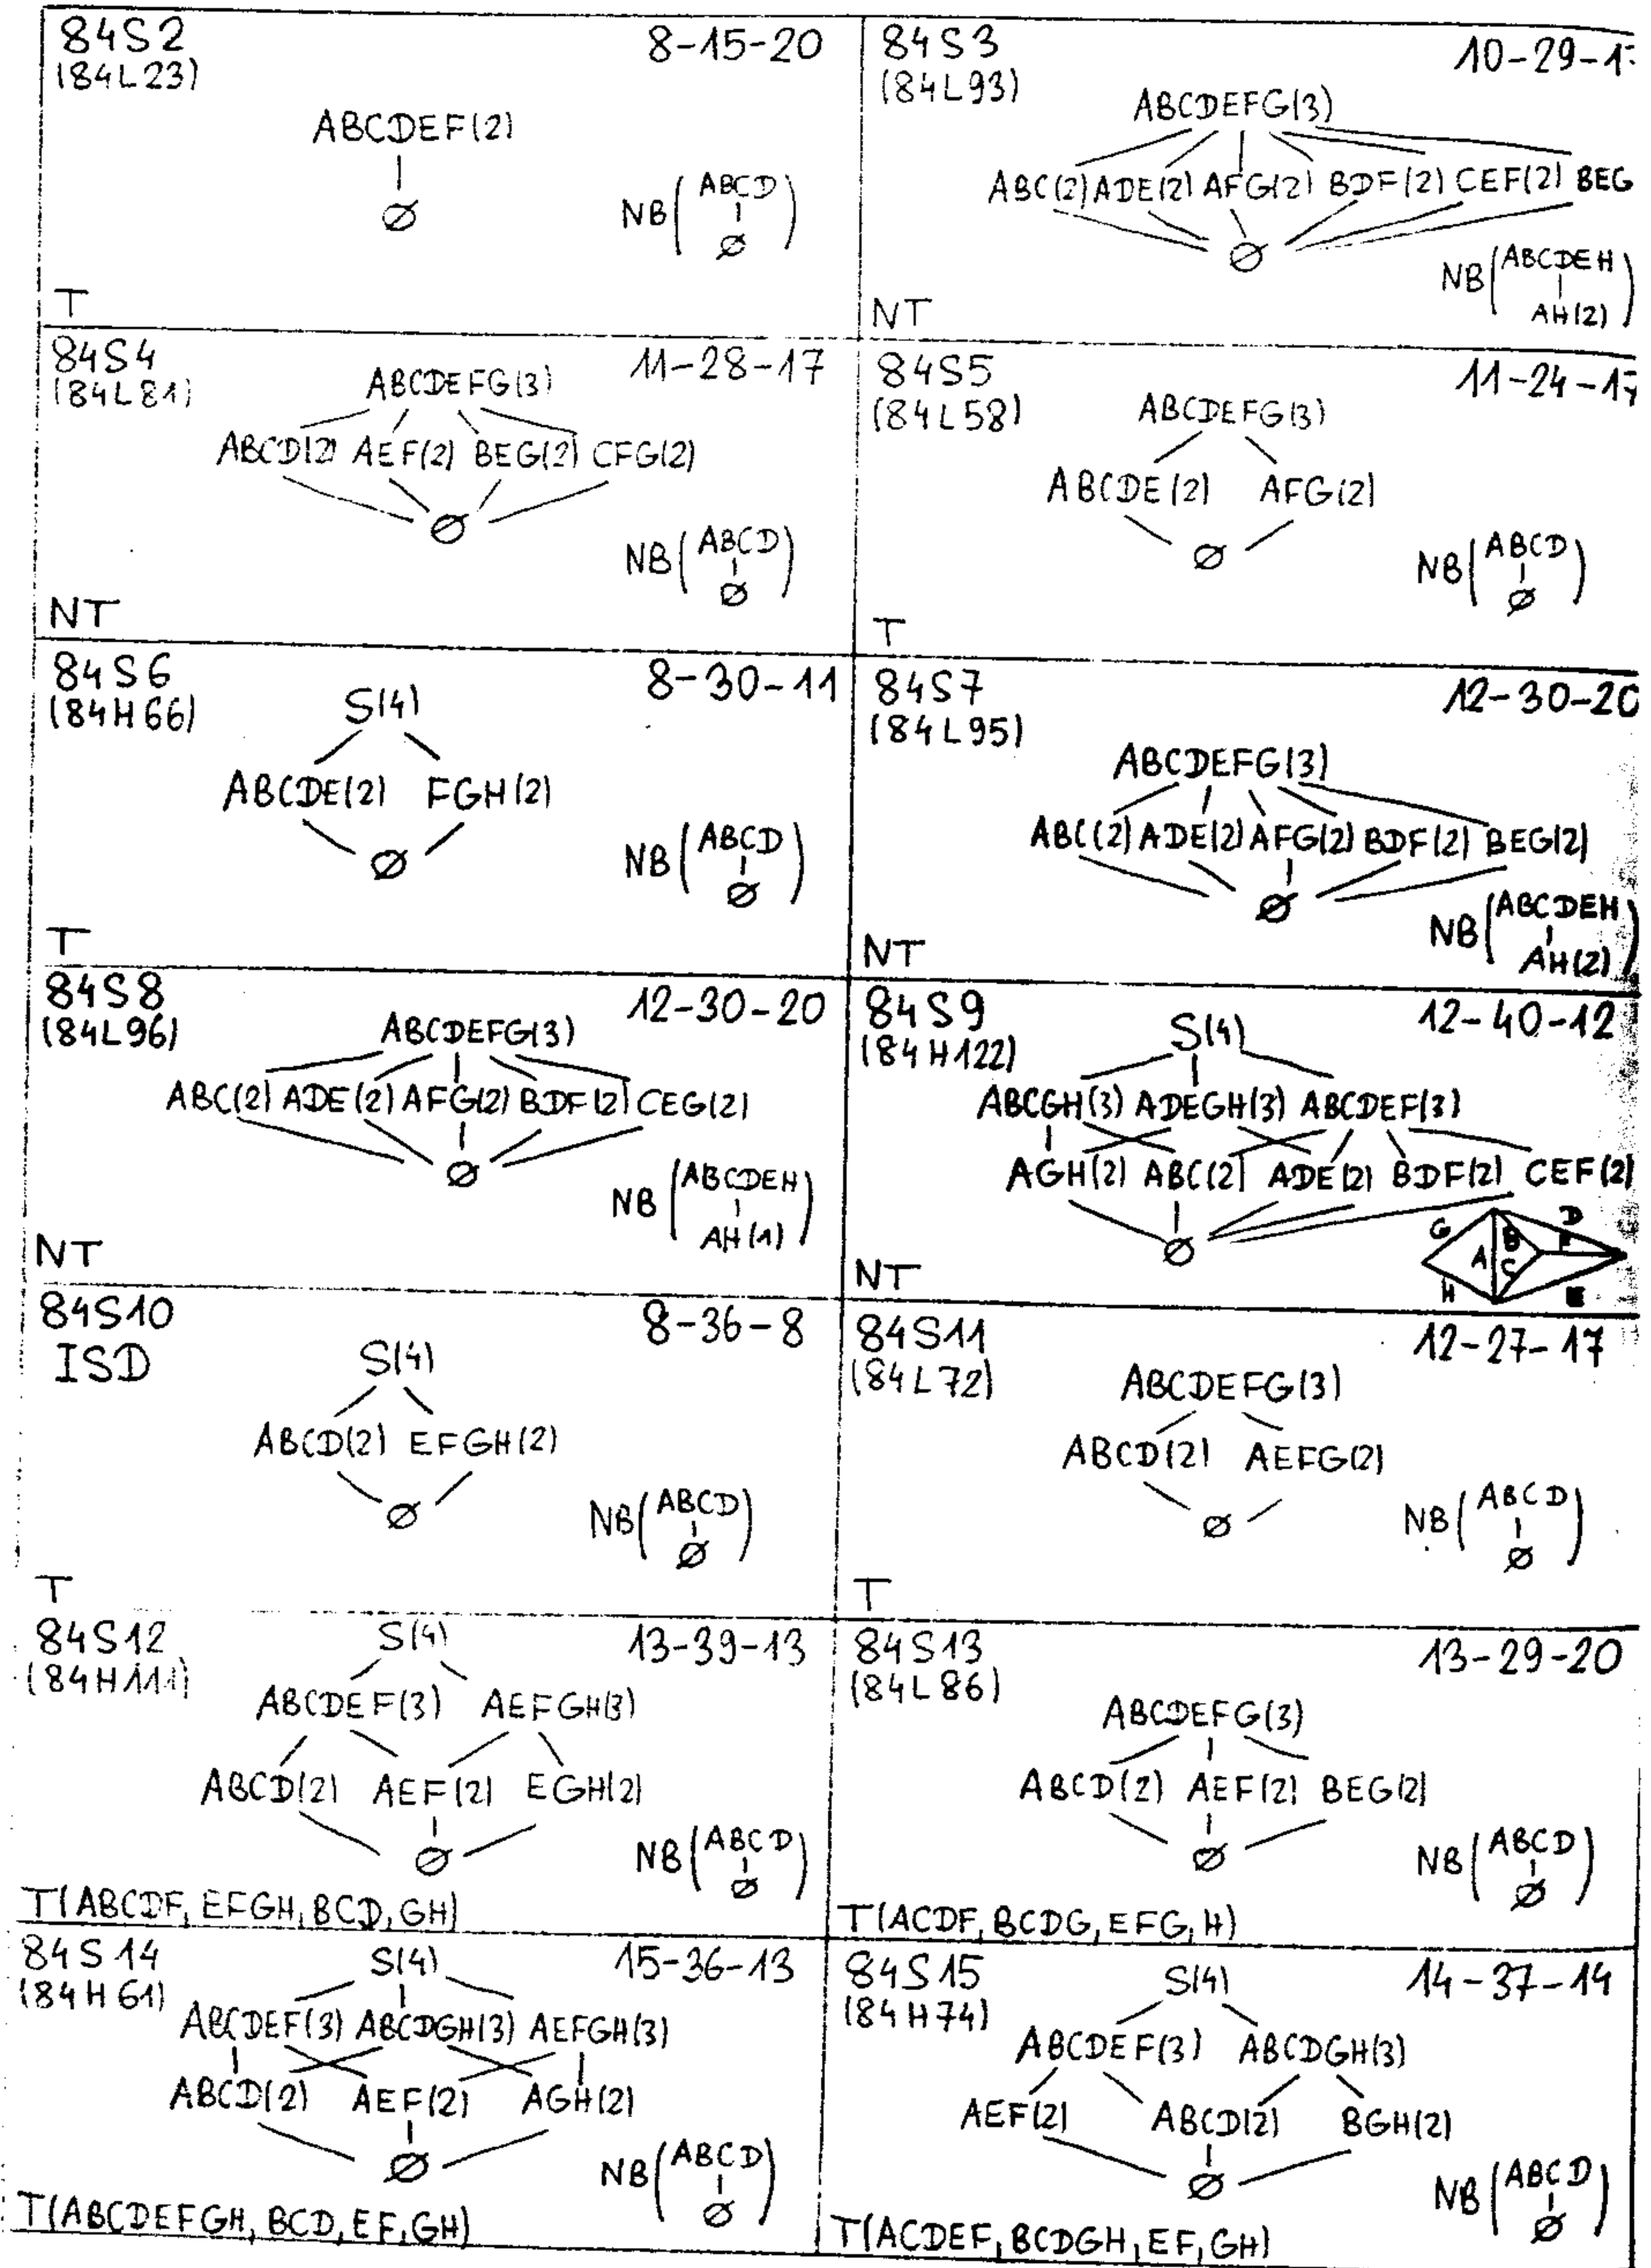 84S2 8-15-20
(84L23)
ABCDEF(2)
∅
NB(ABCD
∅)
T
84S3 10-29-1
(84L93)
ABCDEFG(3)
ABC(2) ADE(2) AFG(2) BDF(2) CEF(2) BEG
∅
NB(ABCDEH
AH(2))
NT
84S4 11-28-17
(84L81)
ABCDEFG(3)
ABCD(2) AEF(2) BEG(2) CFG(2)
∅
NB(ABCD
∅)
NT
84S5 11-24-17
(84L58)
ABCDEFG(3)
ABCDE(2) AFG(2)
∅
NB(ABCD
∅)
T
84S6 8-30-11
(84H66)
S(4)
ABCDE(2) FGH(2)
∅
NB(ABCD
∅)
T
84S7 12-30-20
(84L95)
ABCDEFG(3)
ABC(2) ADE(2) AFG(2) BDF(2) BEG(2)
∅
NB(ABCDEH
AH(2))
NT
84S8 12-30-20
(84L96)
ABCDEFG(3)
ABC(2) ADE(2) AFG(2) BDF(2) CEG(2)
∅
NB(ABCDEH
AH(1))
NT
84S9 12-40-12
(84H122)
S(4)
ABCGH(3) ADEGH(3) ABCDEF(3)
AGH(2) ABC(2) ADE(2) BDF(2) CEF(2)
∅
G B D
A F
C
H E
NT
84S10 8-36-8
ISD
S(4)
ABCD(2) EFGH(2)
∅
NB(ABCD
∅)
T
84S11 12-27-17
(84L72)
ABCDEFG(3)
ABCD(2) AEFG(2)
∅
NB(ABCD
∅)
T
84S12 13-39-13
(84H111)
S(4)
ABCDEF(3) AEFGH(3)
ABCD(2) AEF(2) EGH(2)
∅
NB(ABCD
∅)
T(ABCDF, EFGH, BCD, GH)
84S13 13-29-20
(84L86)
ABCDEFG(3)
ABCD(2) AEF(2) BEG(2)
∅
NB(ABCD
∅)
T(ACDF, BCDG, EFG, H)
84S14 15-36-13
(84H61)
S(4)
ABCDEF(3) ABCDGH(3) AEFGH(3)
ABCD(2) AEF(2) AGH(2)
∅
NB(ABCD
∅)
T(ABCDEFGH, BCD, EF, GH)
84S15 14-37-14
(84H74)
S(4)
ABCDEF(3) ABCDGH(3)
AEF(2) ABCD(2) BGH(2)
∅
NB(ABCD
∅)
T(ACDEF, BCDGH, EF, GH)